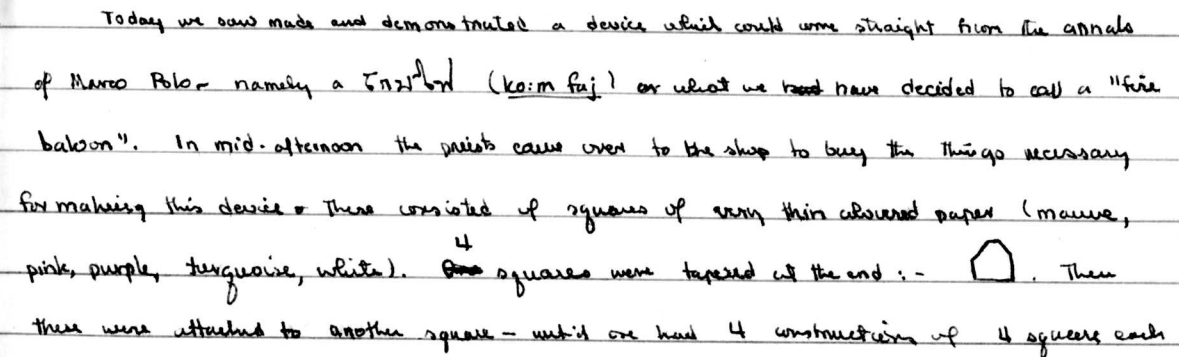 Today we saw made and demonstrated a device which could come straight from the annals
of Marco Polo - namely a โคมไฟ (ko:m faj) or what we have decided to call a "fire
baloon". In mid-afternoon the priests came over to the shop to buy the things necessary
for making this device. These consisted of squares of very thin coloured paper (mauve,
pink, purple, turquoise, white). 4 squares were tapered at the end :- . Then
these were attached to another square - until one had 4 constructions of 4 squares each